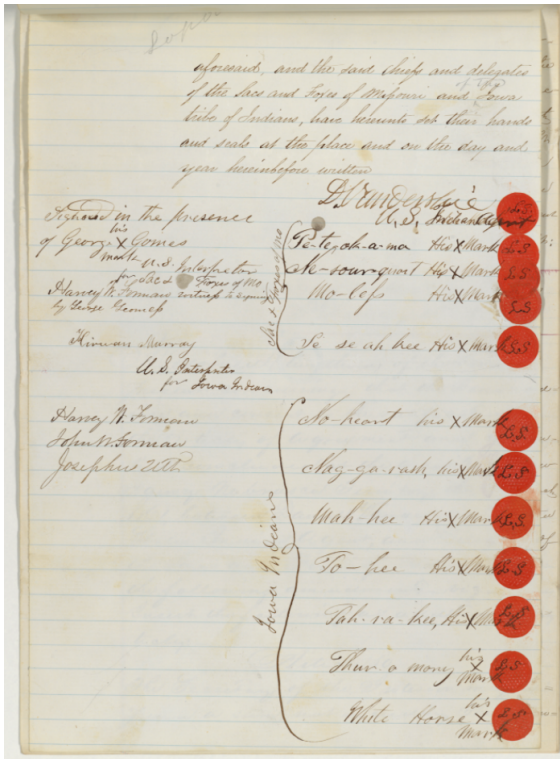 aforesaid, and the said chiefs and delegates
of the Sacs and Foxes of Missouri and of the Iowa
tribe of Indians, have hereunto set their hands
and seals at the place and on the day and
year hereinbefore written
D. Vanderslice L.S.
U.S. Indian Agent
Signed in the presence
of George his X mark Gomes
U.S. Interpreter
for Sac & Foxes of Mo.
Harvey W. Forman witness to signing
by George Gomess
Hirwan Murray
U.S. Interpreter
for Iowa Indians
Harvey W. Forman
John W. Forman
Josephus Utt
Sac & Foxes of Mo
Pe-te-ok-a-ma His X Mark L.S.
Ne-sour-quoit His X Mark L.S.
Mo-less His X Mark L.S.
Se se ah kee His X mark L.S.
Iowa Indians
No-heart his X Mark L.S.
Nag-ga-rash, his X Mark L.S.
Mah-hee His X Mark L.S.
To-hee His X Mark L.S.
Tah-ra-kee, His X Mark L.S.
Thur-o-mony his X Mark L.S.
White Horse his X Mark L.S.